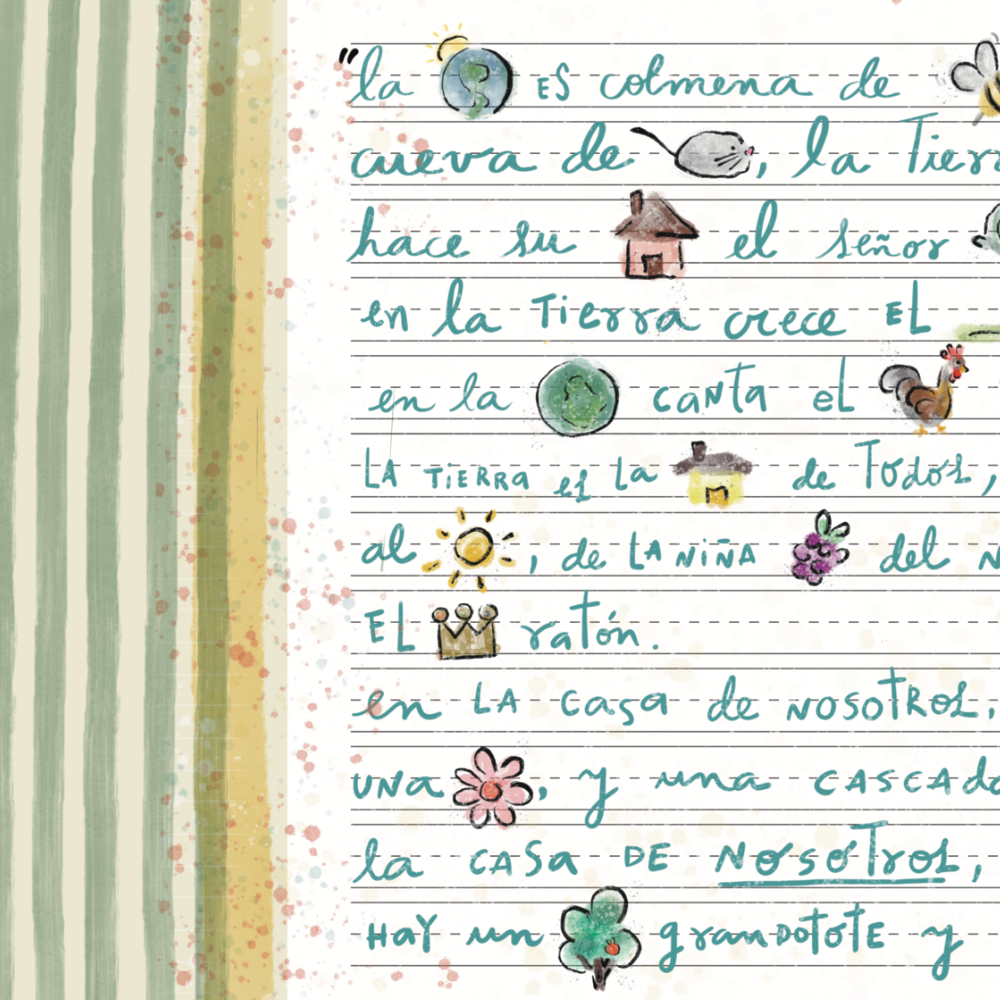 "la ES colmena de
cueva de , la Tierr
hace su el señor
en la Tierra crece EL
en la caNTa eL
LA TiERRa es La de Todos,
al , de LA NiÑA del N
EL ratón.
en LA Casa de NOSOTROS,
UNa , y una CASCAda
la CASa DE NOSOTROS,
HaY un granDOTOTE y